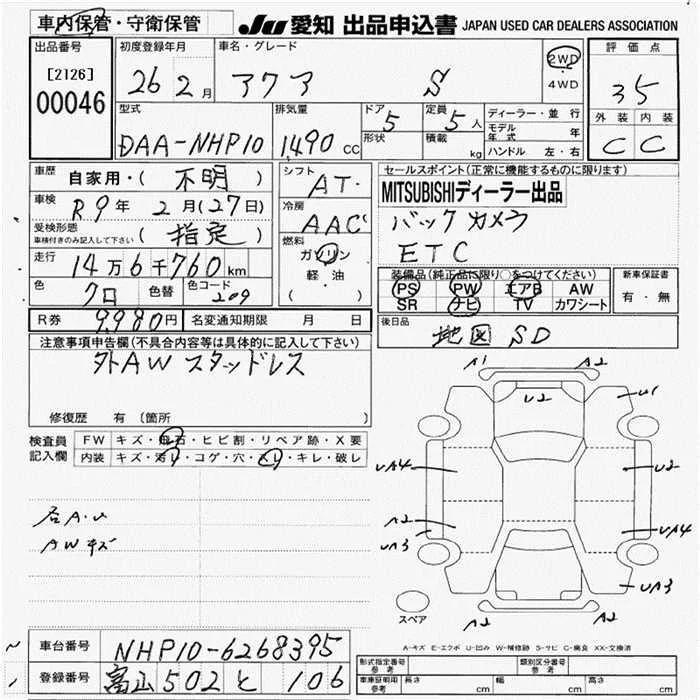 車内保管・守衛保管 JU 愛知 出品申込書 JAPAN USED CAR DEALERS ASSOCIATION
出品番号 [2126] 00046
初度登録年月 26 2月
車名・グレード アクア S
2WD・4WD
評価点 35
外装 C 内装 C
型式 DAA-NHP10
排気量 1,490 CC
ドア 5 形状
定員 5人 積載 kg
ディーラー・並行
モデル年式 年
ハンドル 左・右
車歴 自家用・(不明)
車検 R9年 2月(27日)
受検形態 車検付きのみ記入して下さい (指定)
走行 14万6千760km
色 クロ 色替 色コード 209
シフト AT
冷房 AAC
燃料 ガソリン 軽油 ( )
セールスポイント(正常に機能するものに限ります)
MITSUBISHIディーラー出品
バックカメラ
ETC
装備品(純正品に限り○をつけてください)
PS PW エアB AW
SR ナビ TV カワシート
新車保証書 有・無
R券 9,980円 名変通知期限 月 日
後日品 地図SD
注意事項申告欄(不具合内容等は具体的に記入して下さい)
外AW スタッドレス
修復歴 有 〔箇所 〕
検査員記入欄
FW キズ・飛石・ヒビ割・リペア跡・X要
内装 キズ・汚レ・コゲ・穴・スレ・キレ・破レ
AWキズ
A1 A2
U2 U1
UA4 U2
A2 UA4
UA3 UA3
A2 A2
スペア
A-キズ E-エクボ U-凹み W-補修跡 S-サビ C-腐食 XX-交換済
車台番号 NHP10-6268395
登録番号 富山 502 と 106
形式指定番号 参考 類別区分番号 参考
車庫証明用 参考 長さ cm 幅 cm 高さ cm